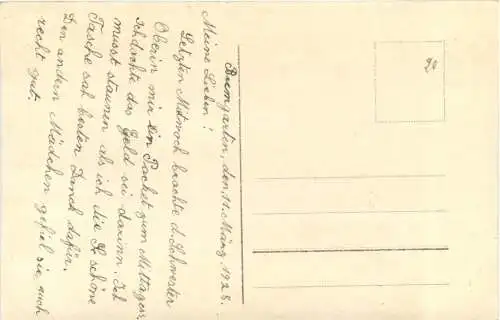 Baumgarten, den 11. März 1928.
Meine Lieben!
Letzten Mittwoch brachte d. Schwester
Oberin mir ein Packet zum Mittagess
Ich dachte das Geld sei darinn. Ich
musst staunen als ich die schöne
Tasche sah besten Dank dafür.
Den andern Mädchen gefiel sie auch
recht gut.